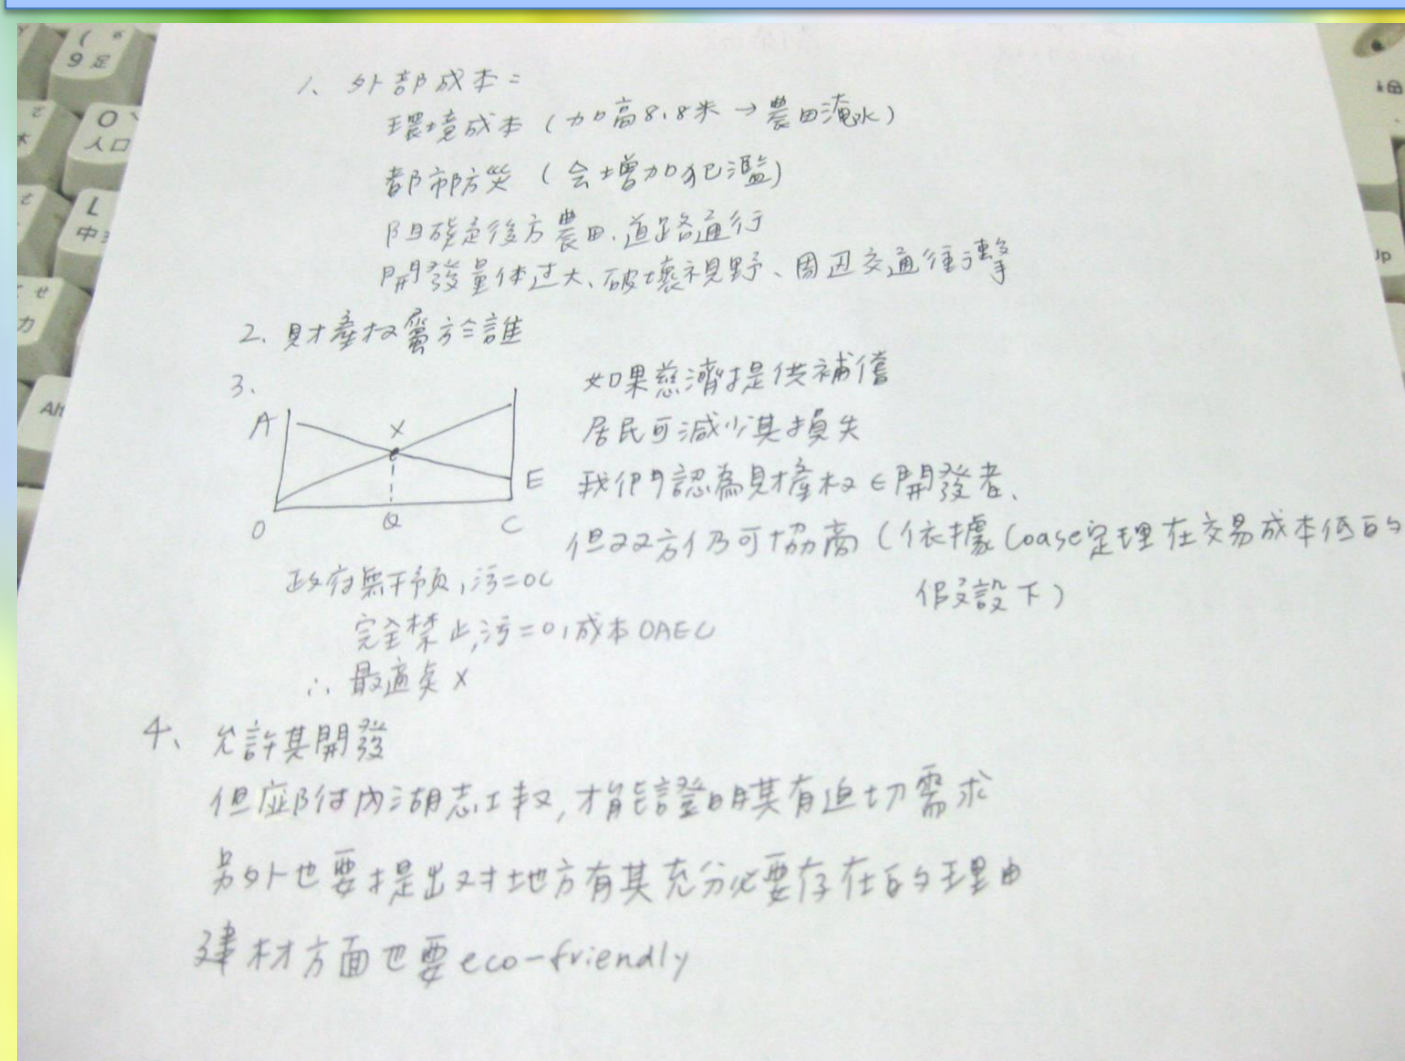 1、外部成本=
環境成本(加高8.8米→農田淹水)
都市防災(会增加犯濫)
阻礙走後方農田、道路通行
開發量体过大、破壞視野、周边交通衝擊
2、財產权屬於誰
3、
如果慈濟提供補償
居民可減少其損失
我們認為財產权∈開發者、
但双方仍可協商(依據Coase定理在交易成本低的
假設下)
A
X
E
O
Q
C
政府無干預,污=OC
完全禁止,污=0,成本OAEC
∴最適矣X
4、允許其開發
但應附內湖志工数,才能證明其有迫切需求
另外也要提出对地方有其充分必要存在的理由
建材方面也要eco-friendly
9足
O
人口
L
中
力
Alt